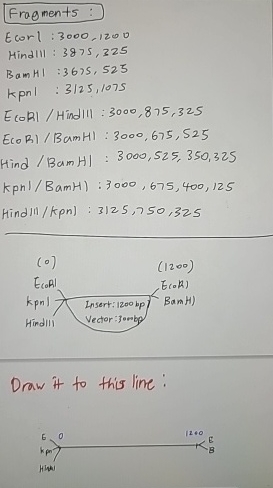 Fragments :
EcorI : 3000, 1200
HindIII : 3875, 325
BamHI : 3675, 525
kpnI : 3125, 1075
EcoRI / HindIII : 3000, 875, 325
EcoRI / BamHI : 3000, 675, 525
Hind / BamHI : 3000, 525, 350, 325
KpnI / BamHI : 3000, 675, 400, 125
HindIII / kpnI : 3125, 750, 325
(0)
(1200)
EcoRI
EcoRI
KpnI
Insert: 1200 bp
BamHI
HindIII
Vector: 3000bp
Draw it to this line :
E 0
1200 E
kpn
B